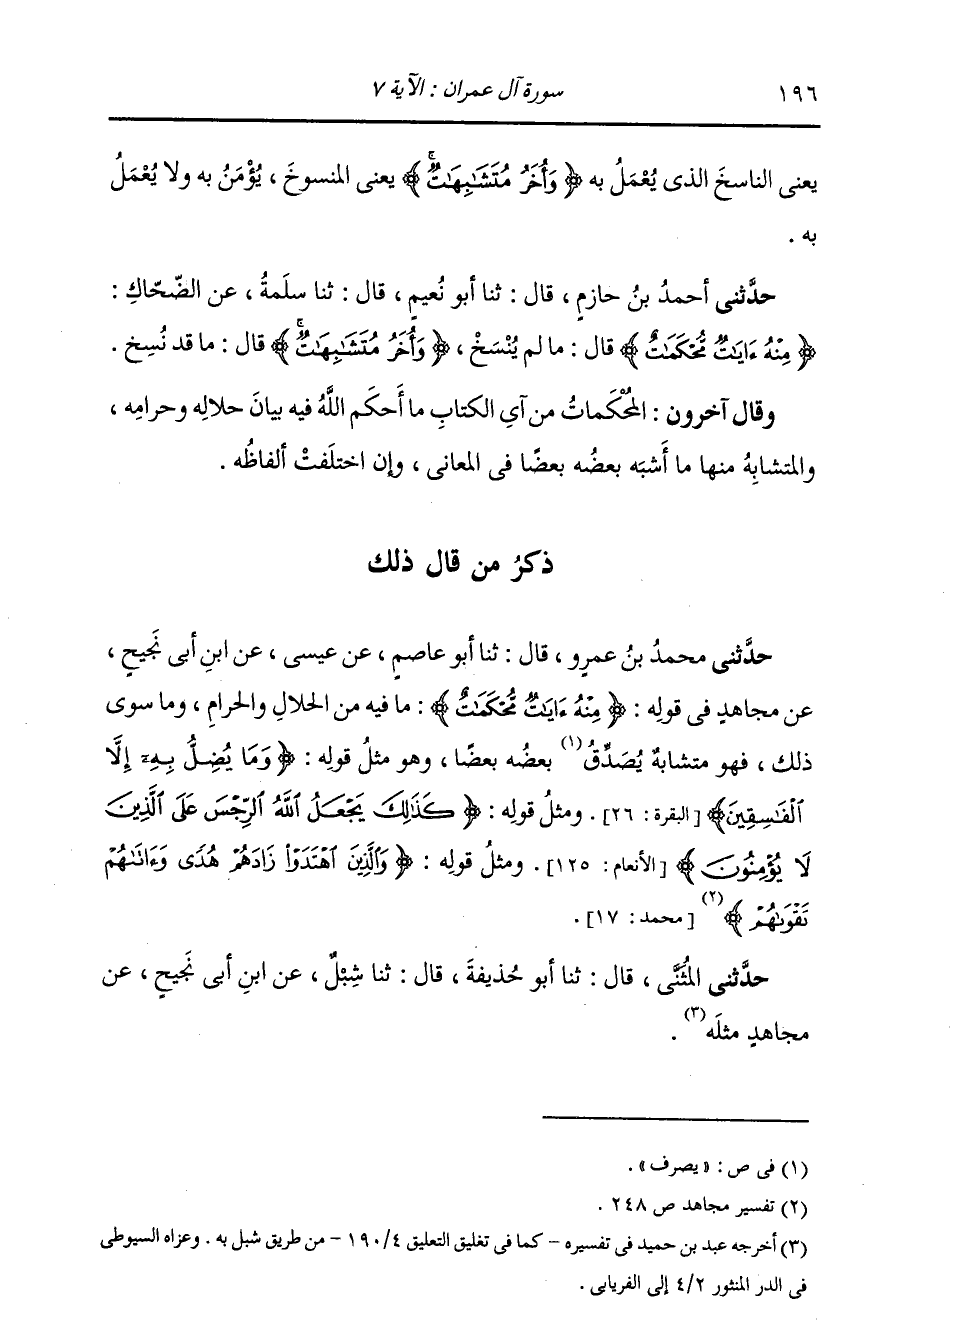 ١٩٦
سورة آل عمران : الآية ٧
يعنى الناسخَ الذى يُعْمَلُ به ﴿ وَأُخَرُ مُتَشَٰبِهَٰتٌۖ ﴾ يعنى المنسوخَ ، يُؤْمَنُ به ولا يُعْمَلُ
به .
حدَّثنى أحمدُ بنُ حازمٍ ، قال : ثنا أبو نُعيمٍ ، قال : ثنا سلَمةُ ، عن الضَّحّاكِ :
﴿ مِنْهُ ءَايَٰتٌ مُّحْكَمَٰتٌ ﴾ قال : ما لم يُنْسَخْ ، ﴿ وَأُخَرُ مُتَشَٰبِهَٰتٌۖ ﴾ قال : ما قد نُسِخ .
وقال آخرون : المُحْكَماتُ من آىِ الكتابِ ما أَحكَم اللَّهُ فيه بيانَ حلالِه وحرامِه ،
والمتشابِهُ منها ما أَشبَه بعضُه بعضًا فى المعانى ، وإن اختلَفتْ ألفاظُه .
ذكرُ من قال ذلك
حدَّثنى محمدُ بنُ عمرٍو ، قال : ثنا أبو عاصمٍ ، عن عيسى ، عن ابنِ أبى نَجيحٍ ،
عن مجاهدٍ فى قولِه : ﴿ مِنْهُ ءَايَٰتٌ مُّحْكَمَٰتٌ ﴾ : ما فيه من الحلالِ والحرامِ ، وما سوى
ذلك ، فهو متشابهٌ يُصَدِّقُ(١) بعضُه بعضًا ، وهو مثلُ قولِه : ﴿ وَمَا يُضِلُّ بِهِۦٓ إِلَّا
ٱلْفَٰسِقِينَ﴾ [البقرة : ٢٦] . ومثلُ قولِه : ﴿ كَذَٰلِكَ يَجْعَلُ ٱللَّهُ ٱلرِّجْسَ عَلَى ٱلَّذِينَ
لَا يُؤْمِنُونَ ﴾ [الأنعام : ١٢٥] . ومثلُ قولِه : ﴿ وَٱلَّذِينَ ٱهْتَدَوْا۟ زَادَهُمْ هُدًى وَءَاتَىٰهُمْ
تَقْوَىٰهُمْ ﴾(٢) [محمد : ١٧] .
حدَّثنى المُثَنَّى ، قال : ثنا أبو حُذيفةَ ، قال : ثنا شِبْلٌ ، عن ابنِ أبى نَجيحٍ ، عن
مجاهدٍ مثلَه(٣) .
(١) فى ص : « يصرف » .
(٢) تفسير مجاهد ص ٢٤٨ .
(٣) أخرجه عبد بن حميد فى تفسيره - كما فى تغليق التعليق ٤/ ١٩٠ - من طريق شبل به . وعزاه السيوطى
فى الدر المنثور ٢/ ٤ إلى الفريابى .